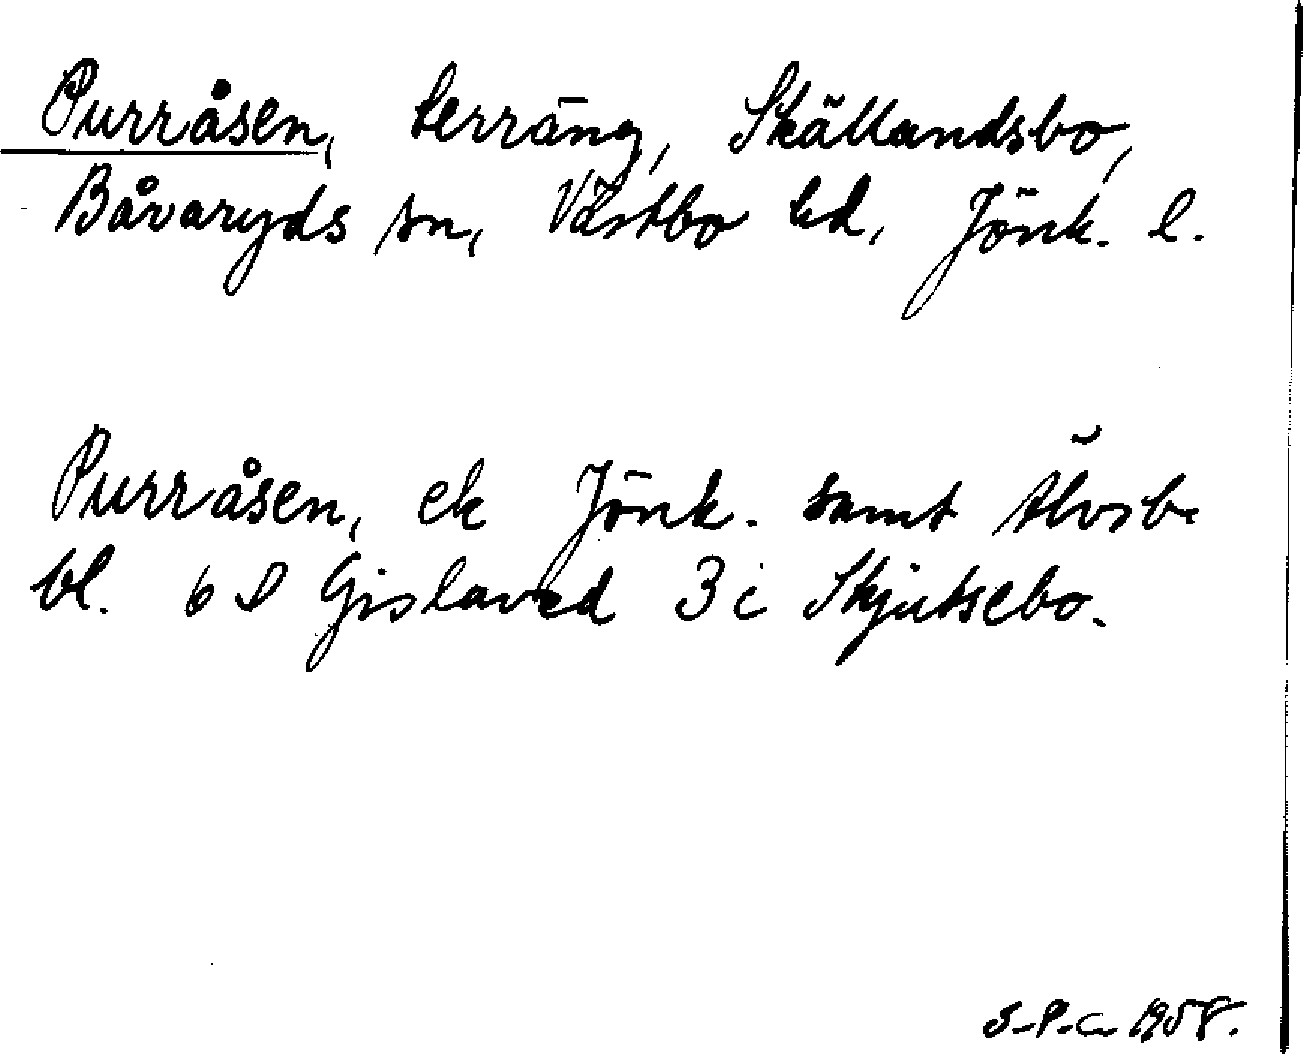 Purråsen, terräng, Skällandsbo,
Båvaryds sn, Västbo hd, Jönk. l.
Purråsen, ek Jönk. samt Älvsb.
bl. 6 d Gislaved 3 i Skjutsebo.
S-P.C. 1958.